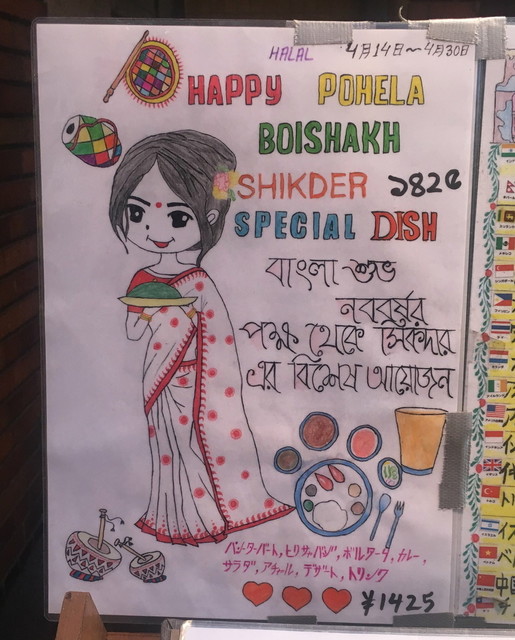 HALAL 4月14日～4月30日
HAPPY POHELA
BOISHAKH
SHIKDER ১৪২৫
SPECIAL DISH
বাংলা শুভ
নববর্ষের
পক্ষ থেকে সিকদার
এর বিশেষ আয়োজন
パンターバート, ヒリサ, バジ, ボルタータ, カレー,
サラダ, アチャール, デザート, ドリンク
¥1425